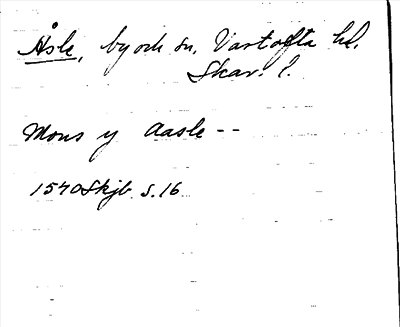 Åsle, by och sn. Vartofta hd.
Skar. l.
Mons y Aasle --
1540 Skjb s. 16